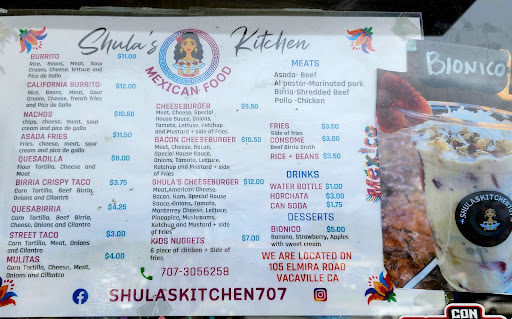 Shula's Kitchen
MEXICAN FOOD
BURRITO $11.00
Rice, Beans, Meat, Sour
Cream, Cheese, lettuce and
Pico de Gallo
CALIFORNIA BURRITO $12.00
Rice, Beans, Meat, Sour
Cream, Cheese, french fries
and Pico de Gallo
NACHOS $10.50
Chips, cheese, meat, sour
cream and pico de gallo
ASADA FRIES $11.50
Fries, cheese, meat, sour
cream and pico de gallo
QUESADILLA $9.00
Flour Tortilla, Cheese and
Meat
BIRRIA CRISPY TACO $3.75
Corn Tortilla, Beef Birria,
Onions and Cilantro
QUESABIRRIA $4.25
Corn Tortilla, Beef Birria,
Cheese, Onions and Cilantro
STREET TACO $3.00
Corn Tortilla, Meat, Onions
and Cilantro
MULITAS $4.00
Corn Tortilla, Cheese, Meat,
Onions and Cilantro
CHEESEBURGER $9.50
Meat, Cheese, Special
House Sauce, Onions,
Tomato, Lettuce, Ketchup
and Mustard + side of Fries
BACON CHEESEBURGER $10.50
Meat, Cheese, Bacon,
Special House Sauce,
Onions, Tomato, Lettuce,
Ketchup and Mustard + side
of Fries
SHULA'S CHEESEBURGER $12.00
Meat, American Cheese,
Bacon, Ham, Special House
Sauce, Onions, Tomato,
Monterey Cheese, Lettuce,
Pineapple, Mushrooms,
Ketchup and Mustard + side
of Fries
KIDS NUGGETS $7.00
6 piece of chicken + Side of
fries.
707-3056258
MEATS
Asada- Beef
Al pastor-Marinated pork
Birria-Shredded Beef
Pollo -Chicken
FRIES $3.50
Side of fries
CONSOME $3.00
Beef Birria Broth
RICE + BEANS $3.50
DRINKS
WATER BOTTLE $1.00
HORCHATA $3.00
CAN SODA $1.75
DESSERTS
BIONICO $5.00
Banana, Strawberry, Apples
with sweet cream
WE ARE LOCATED ON
105 ELMIRA ROAD
VACAVILLE CA
SHULASKITCHEN707
MEXICO
BIONICO
SHULASKITCHEN
CON